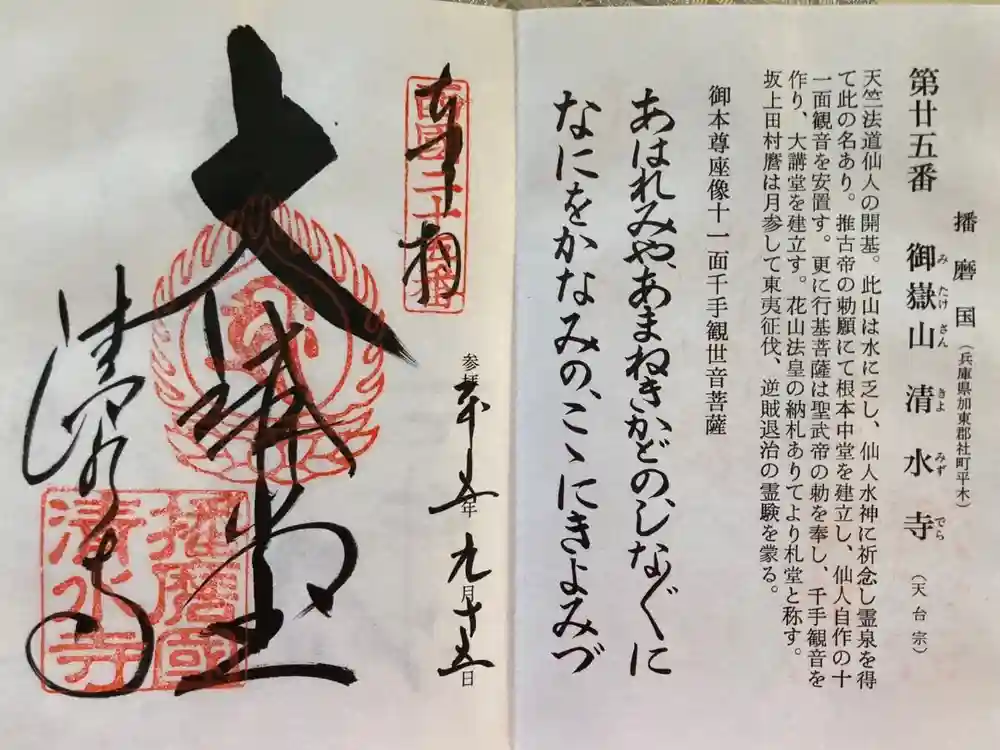 第廿五番
播磨国（兵庫県加東郡社町平木）
御嶽山 清水寺（天台宗）
みたけさん きよみずでら
天竺法道仙人の開基。此山は水に乏し、仙人水神に祈念し霊泉を得
て此の名あり。推古帝の勅願にて根本中堂を建立し、仙人自作の十
一面観音を安置す。更に行基菩薩は聖武帝の勅を奉し、千手観音を
作り、大講堂を建立す。花山法皇の納札ありてより札堂と称す。
坂上田村麿は月参して東夷征伐、逆賊退治の霊験を蒙る。
御本尊座像十一面千手観世音菩薩
あはれみや、あまねきかどの、しなぐに
なにをかなみの、こゝにきよみづ
西國二十五番
奉拝
参拝 平成五年九月十五日
大講堂
清水寺
播磨國
清水寺